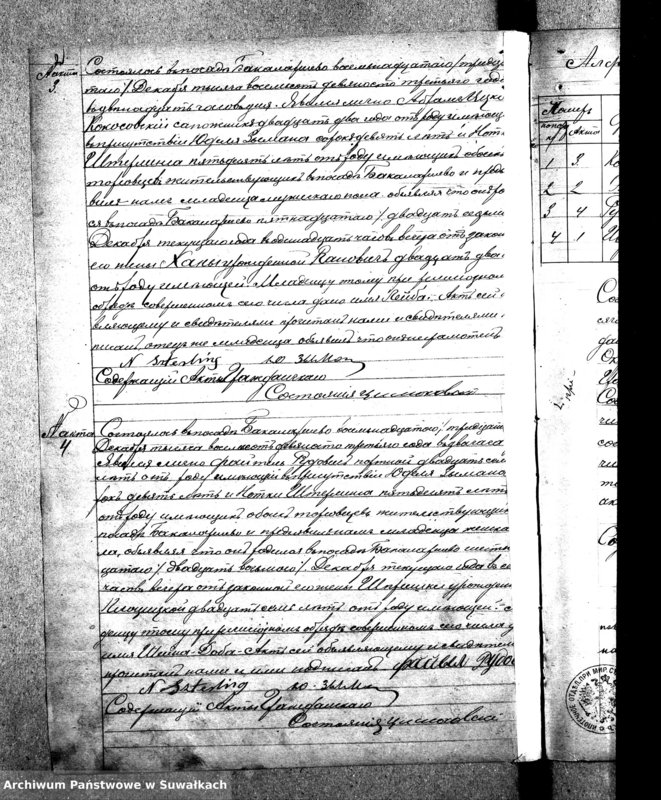 № акта
3.
Состоялось въ посадѣ Бакаларжево восемнадцатаго/тридца
таго/ Декабря тысяча восемьсотъ девяносто третьяго года
въ двѣнадцать часовъ дня. Явился лично Абрамъ Ицко
Кокосовскій сапожникъ двадцать два года отъ роду имѣющ
въ присутствіи Юделя Зымана сорокъ девять лѣтъ и Нотк
Штерлинга пятьдесятъ лѣтъ отъ роду имѣющихъ обоихъ
торговцевъ жительствующихъ въ посадѣ Бакаларжево и предъ
явилъ намъ младенца мужескаго пола объявляя что онъ ро
ся въ посадѣ Бакаларжево пятнадцатаго/ двадцать седьм
Декабря текущаго года въ одинадцать часовъ вечера отъ закон
его жены Ханы урожденной двадцать два
отъ роду имѣющей. Младенцу этому при религіозном
обрядѣ совершенномъ сего числа дано имя Лейба. Актъ сей о
вляющему и свидѣтелямъ прочитанъ нами и свидѣтелями
писанъ, отецъ же младенца объявилъ что онъ неграмотенъ
N Szterling Ю. Зыман
Содержащій Акты Гражданскаго
Состоянія
№ акта
4.
Состоялось въ посадѣ Бакаларжево восемнадцатаго/тридцат
Декабря тысяча восемьсотъ девяносто третьяго года въ два часа
Явился лично Файвель Рудовскій портной двадцать сем
лѣтъ отъ роду имѣющій въ присутствіи Юделя Зымана
рокъ девять лѣтъ и Нотки Штерлинга пятьдесятъ лѣтъ
отъ роду имѣющихъ обоихъ торговцевъ жительствующихъ
посадѣ Бакаларжево и предъявилъ намъ младенца женска
ла, объявляя что онъ родился въ посадѣ Бакаларжево шестна
цатаго/ двадцать восьмаго/ Декабря текущаго года въ
часовъ вечера отъ законной его жены урожден
двадцать семь лѣтъ отъ роду имѣющей.
денцу этому при религіозномъ обрядѣ совершенномъ сего числа д
имя Шейна-Доба. Актъ сей объявляющему и свидѣтелям
прочитанъ нами и ими подписанъ Файвел Рудов
N Szterling Ю. Зыман
Содержащій Акты Гражданскаго
Состоянія
Алф
Номеръ
Акта
1 3
2 2
3 4
4 1
Archiwum Państwowe w Suwałkach